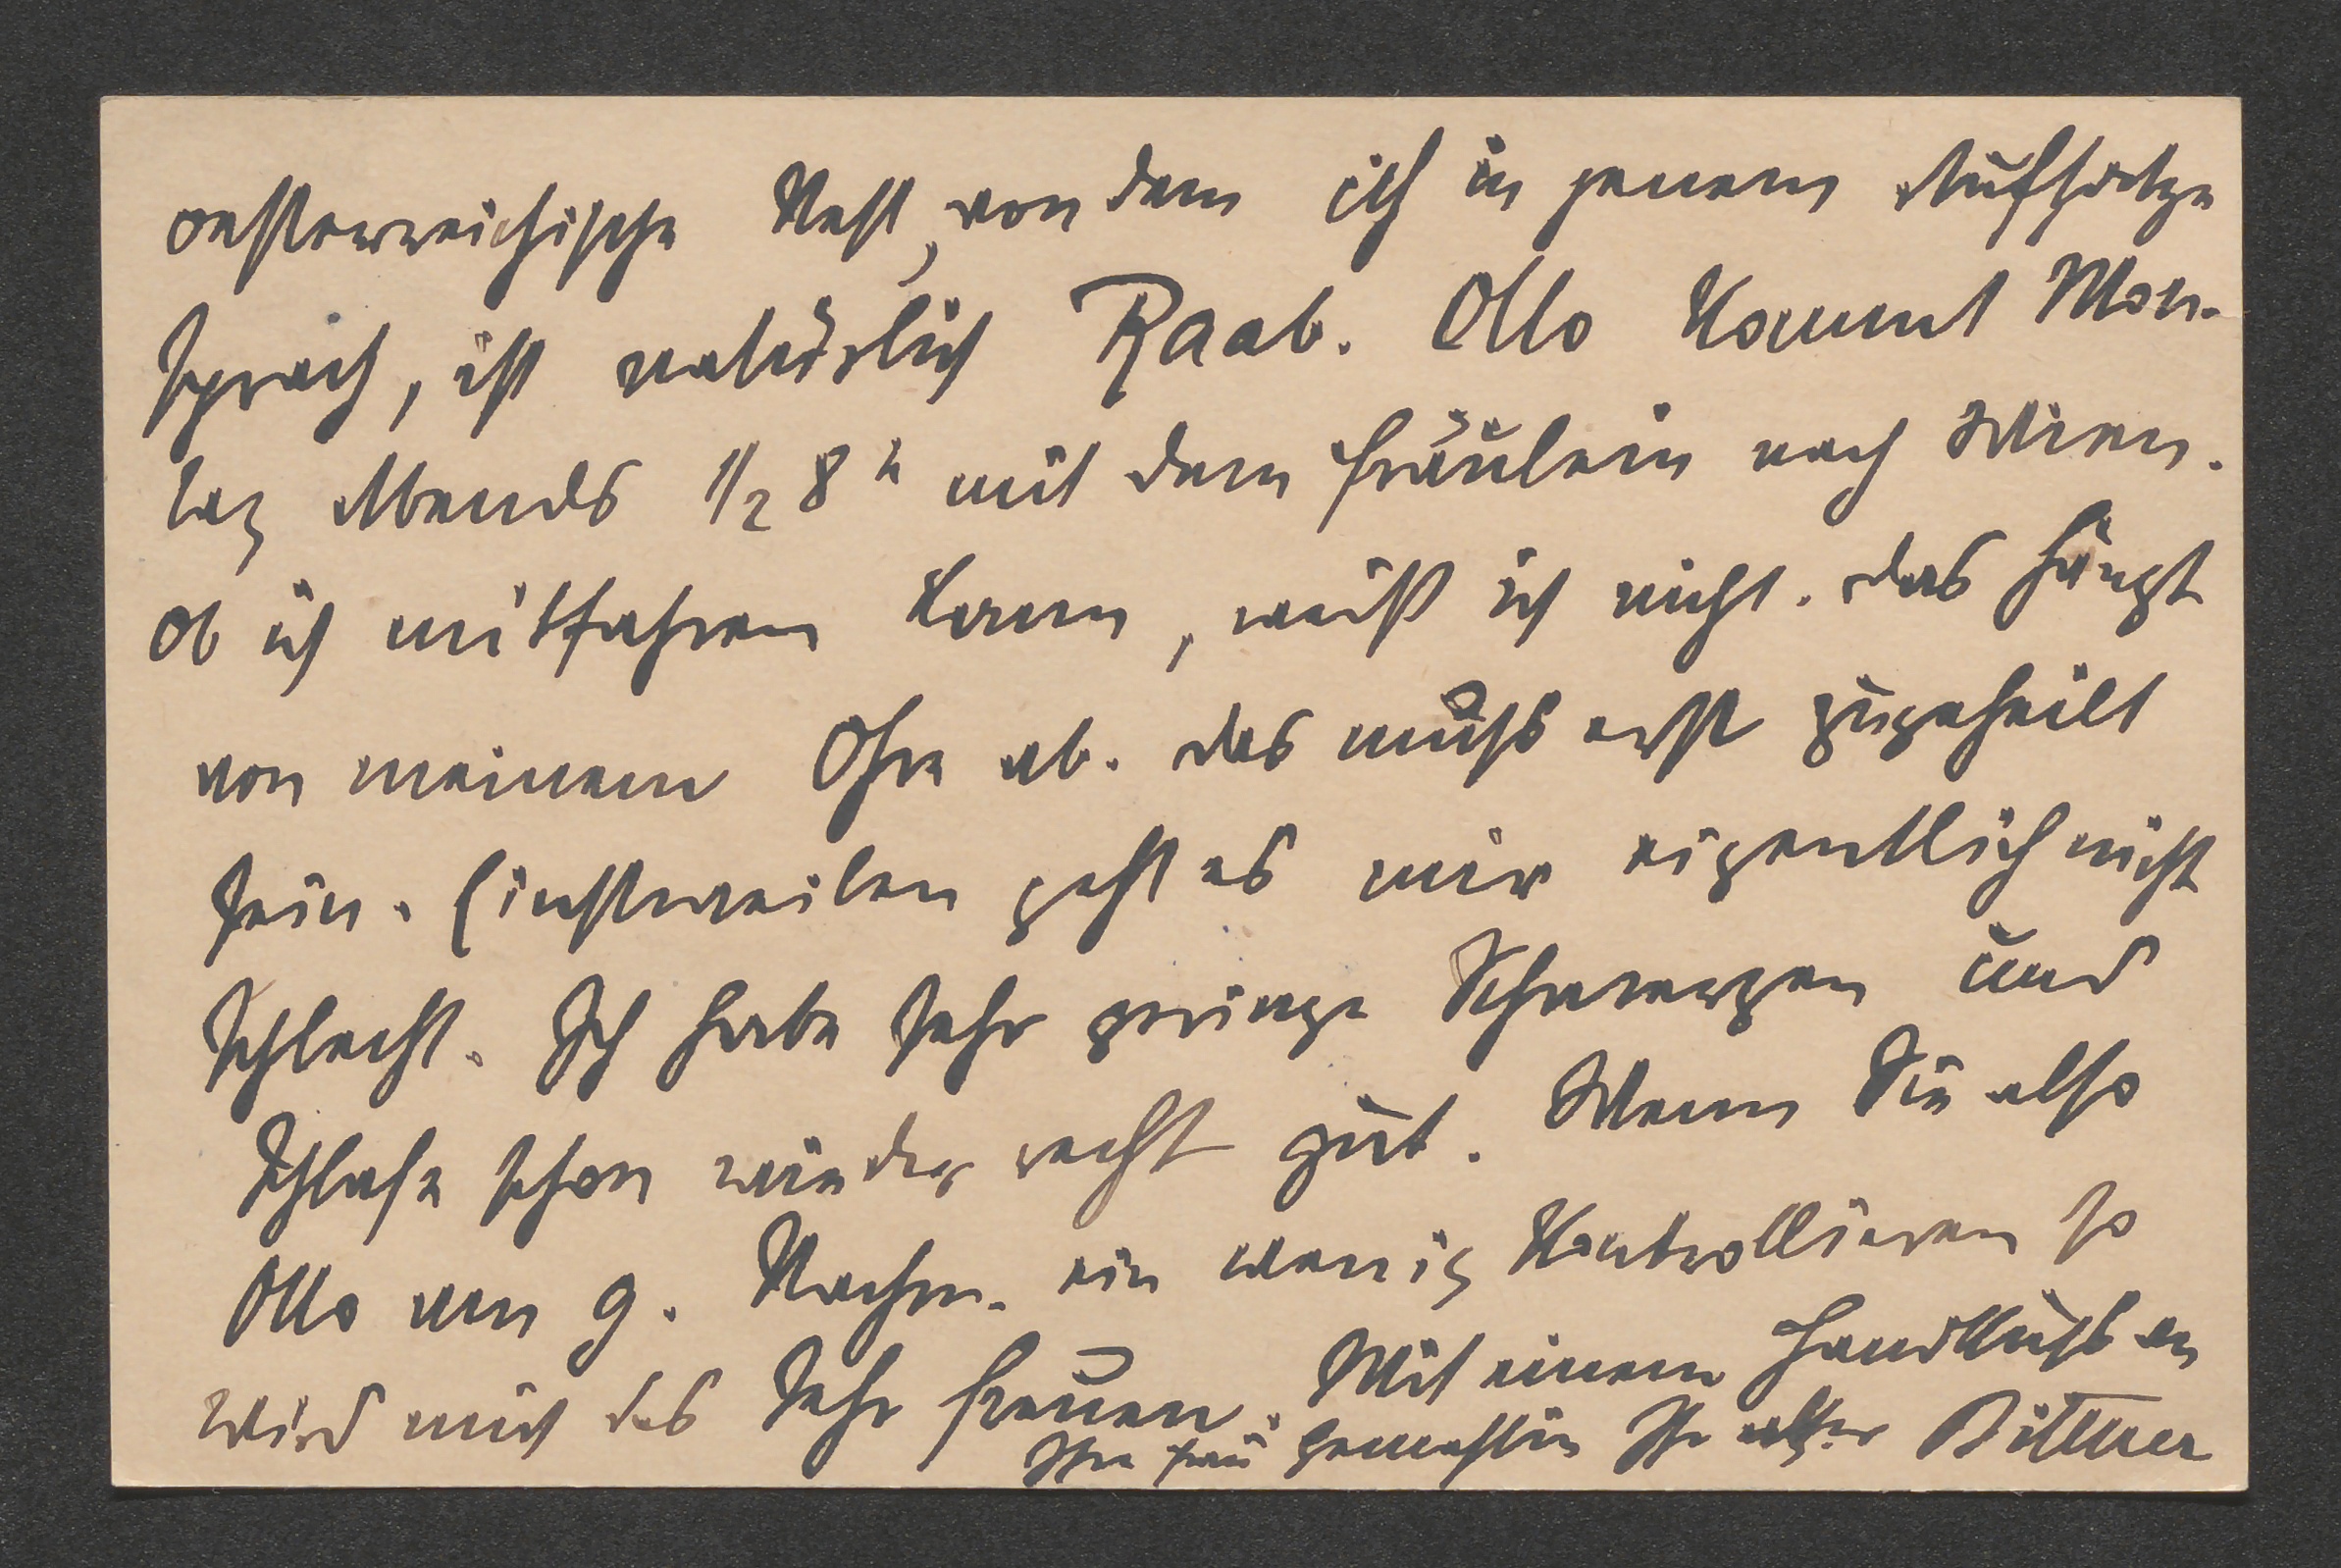 oesterreichische Nest, von dem ich in jenem Aufsatze
sprach, ist natürlich Raab. Otto kommt Mon-
tag Abends 1/2 8 h mit dem Fräulein nach Wien.
Ob ich mitfahren kann, weiß ich nicht. Das hängt
von meinem Ohre ab. Das muß erst zugeheilt
sein. Einstweilen geht es mir eigentlich nicht
schlecht. Ich habe sehr geringe Schmerzen und
schlafe schon wieder recht gut. Wenn Sie also
Otto am 9. Nachm. ein wenig kontrollieren so
wird mich das sehr freuen. Mit einem Handkuß an
Ihre Frau Gemahlin Ihr alter Bittner